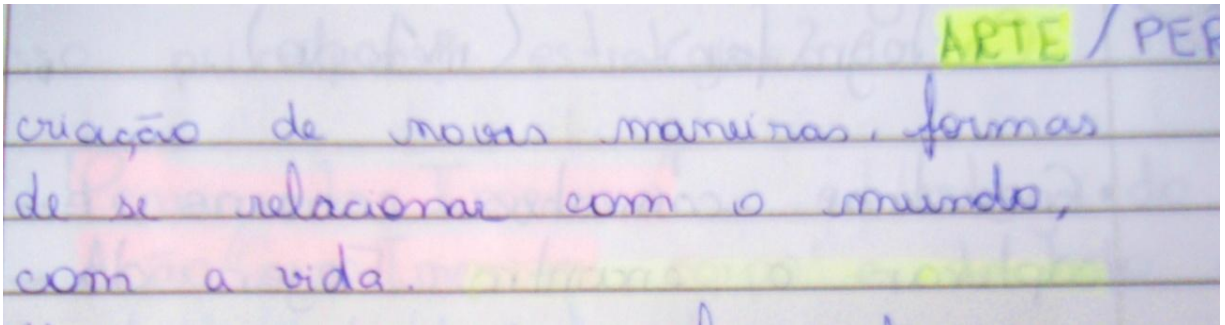 ARTE / PER
criação de novas maneiras, formas
de se relacionar com o mundo,
com a vida.